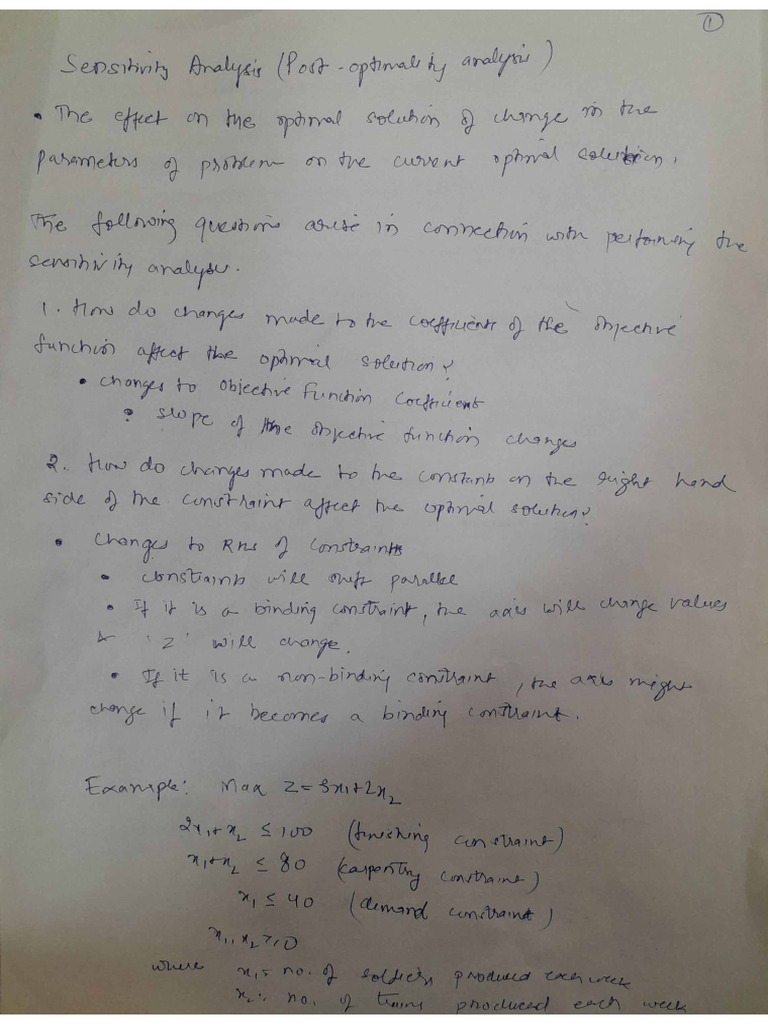 1
Sensitivity Analysis (Post-optimality analysis)
• The effect on the optimal solution of change in the
parameters of problem on the current optimal solution.
The following questions arise in connection with pertaining the
sensitivity analysis.
1. How do changes made to the coefficients of the objective
function affect the optimal solution?
• changes to objective function coefficient
• slope of the objective function changes
2. How do changes made to the constants on the right hand
side of the constraint affect the optimal solution?
• Changes to RHS of constraints
• constraints will shift parallel
• If it is a binding constraint, the axis will change values
& 'Z' will change.
• If it is a non-binding constraint, the axis might
change if it becomes a binding constraint.
Example: Max Z = 3x1+2x2
2x1+x2 ≤ 100 (finishing constraint)
x1+x2 ≤ 80 (carpentry constraint)
x1 ≤ 40 (demand constraint)
x1, x2 ≥ 0
where x1 = no. of soldiers produced each week
x2 = no. of trains produced each week